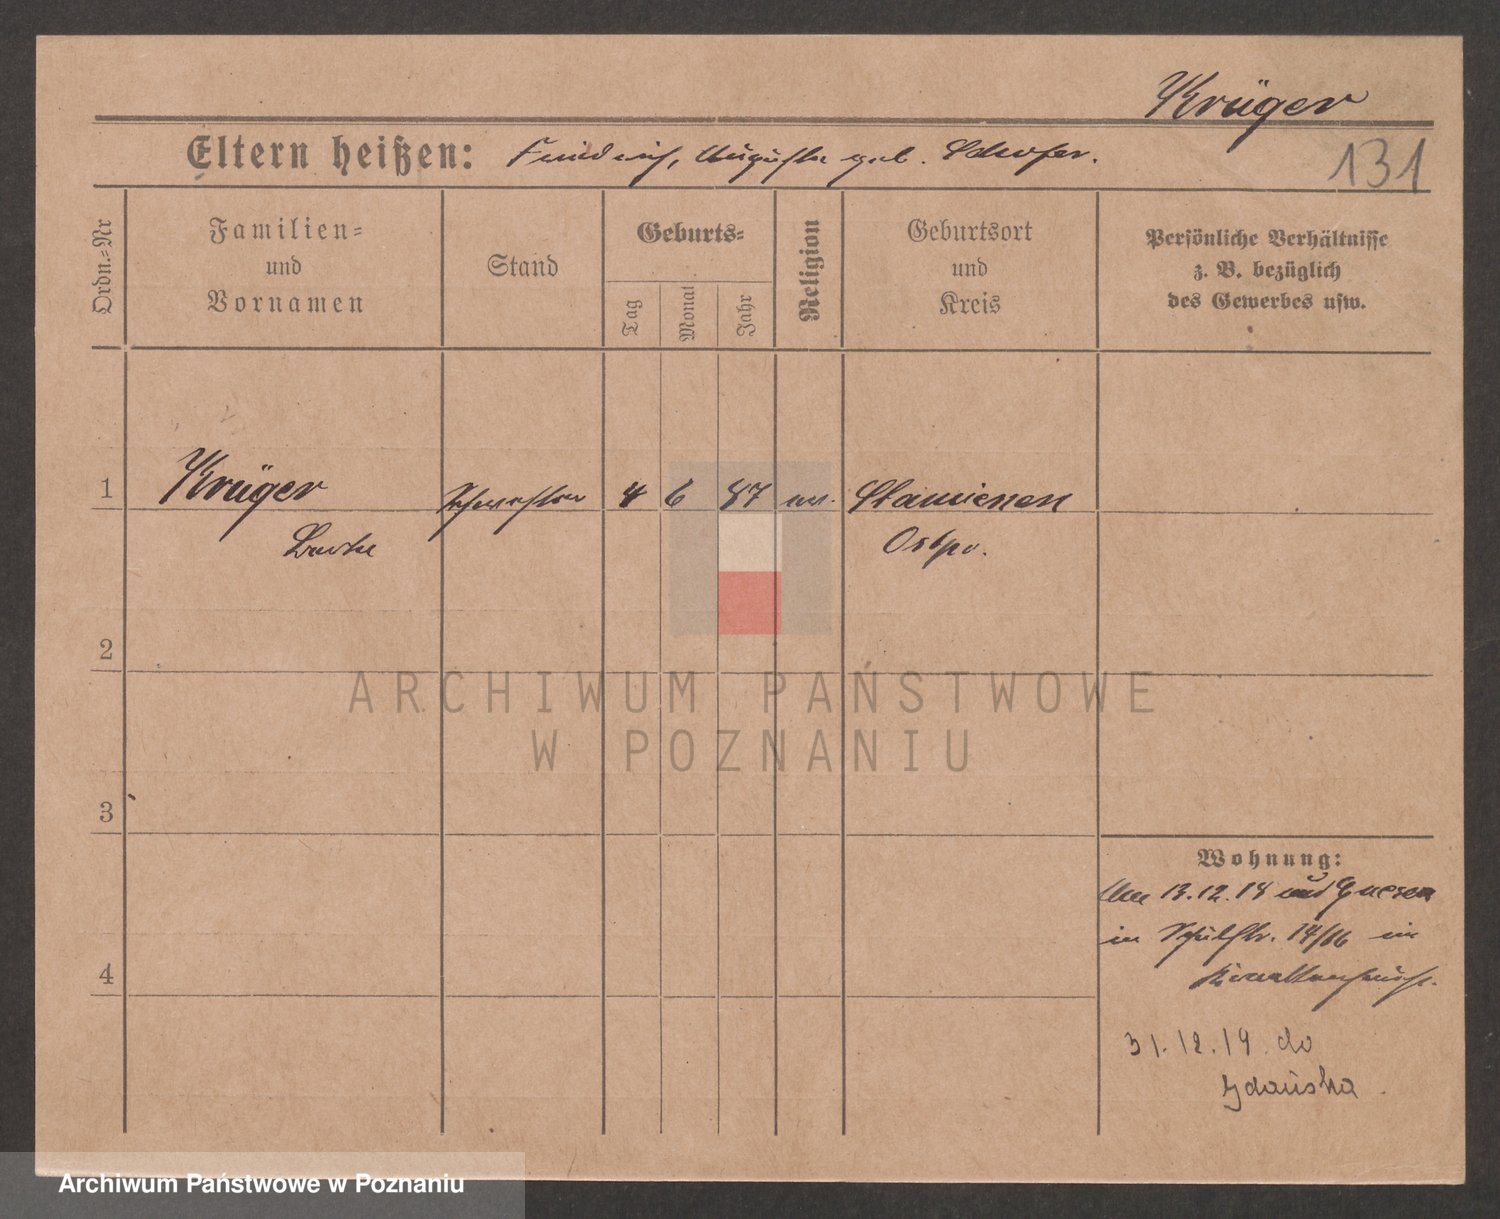 Krüger
Eltern heißen: Friedrich, Auguste geb. Schäfer.
131
Ordn.=Nr
Familien=
und
Vornamen
Stand
Geburts=
Tag
Monat
Jahr
Religion
Geburtsort
und
Kreis
Persönliche Verhältnisse
z. B. bezüglich
des Gewerbes usw.
1 Krüger Schwester 4 6 87 ev. Stamienen
Ostpr.
2
3
4
Wohnung:
13.12.18 Gnesen
in 14/16 im
31.12.19. do
Gdańska.
ARCHIWUM PAŃSTWOWE
W POZNANIU
Archiwum Państwowe w Poznaniu